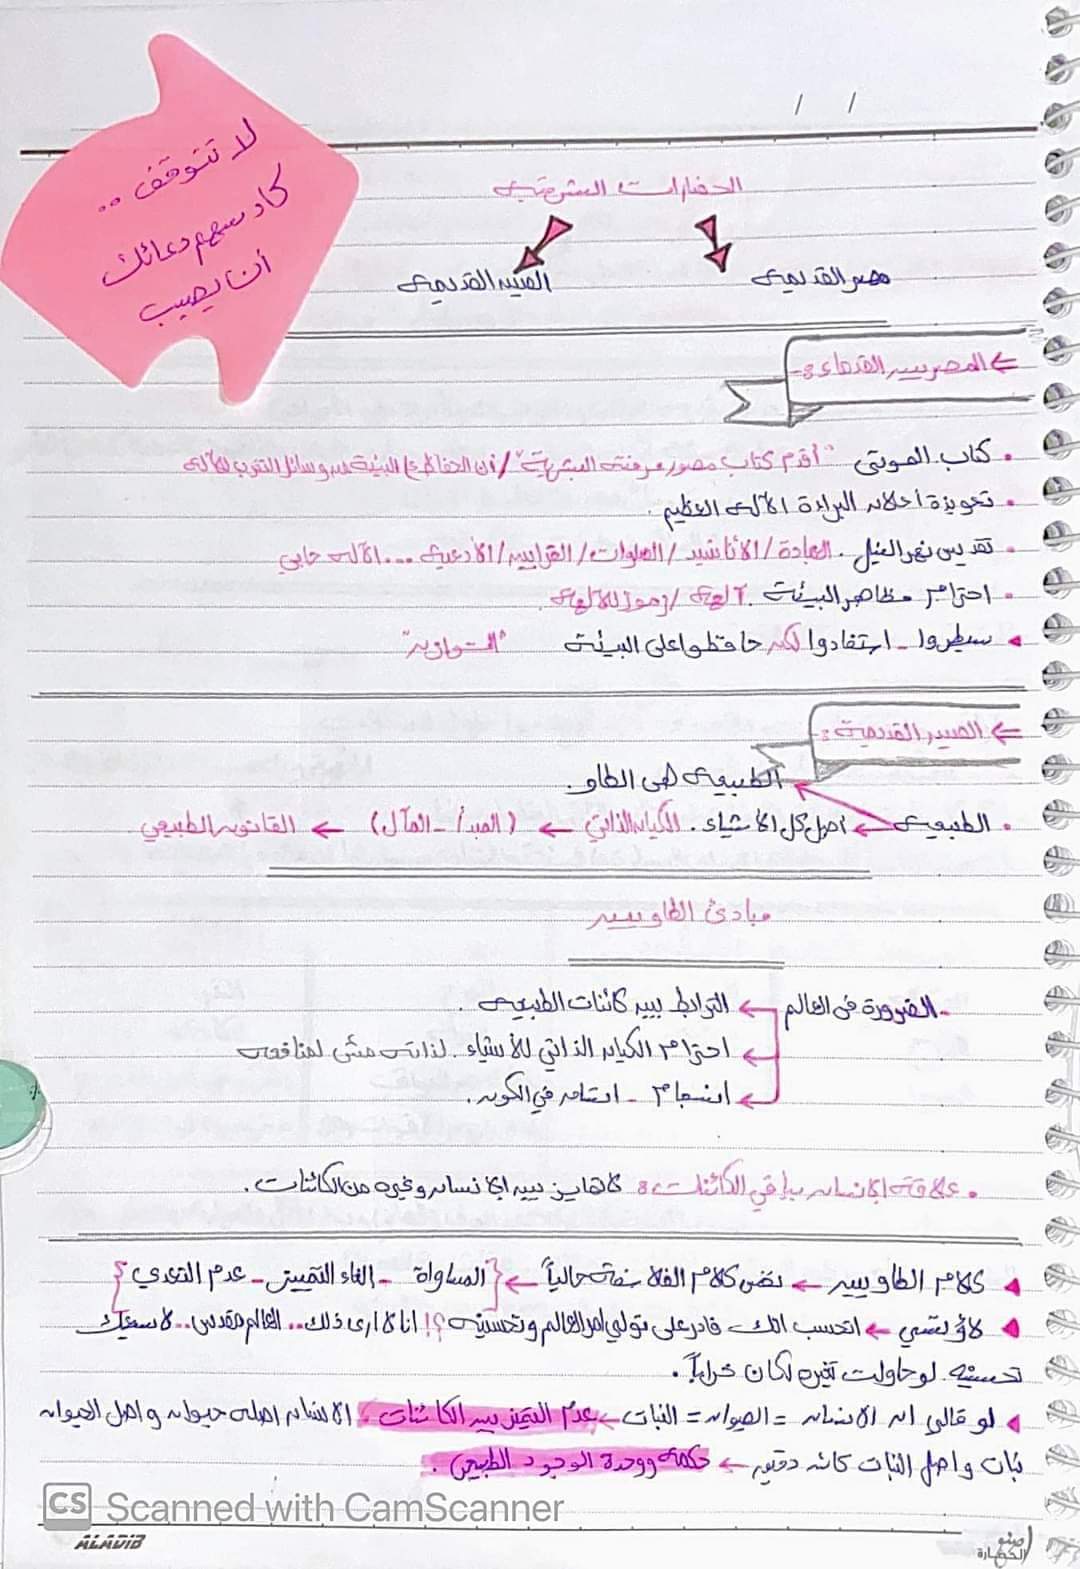 لا تتوقف ..
كاد سهم دعائك
أن يصيب
/ /
الحضارات الشرقية
مصر القديمة
الصين القديمة
← المصريين القدماء :-
• كتاب الموتى "أقدم كتاب مصور عرفته البشرية" / أن الحفاظ ع البيئة من وسائل التقرب للآلهة
• تعويذة إعلان البراءة الآله العظيم.
• تقديس نهر النيل. العبادة / الأناشيد / الصلوات / القرابين / الأدعية ... الآله حابي
• احترام مظاهر البيئة. آلهة / رموز للآلهة.
سيطروا - استفادوا لكن حافظوا على البيئة "التوازن"
← الصين القديمة :-
الطبيعة هي الطاو.
• الطبيعة ← اصل كل الأشياء. الكيان الذاتي ← (المبدأ - المآل) ← القانون الطبيعي
مبادئ الطاويين
- الضرورة في العالم ← الترابط بين كائنات الطبيعة.
← احترام الكيان الذاتي للأشياء. لذاته مش لمنافعه
← انسجام - اتساق في الكون.
• علاقة الإنسان بباقي الكائنات: لا مايز بين الإنسان وغيره من الكائنات.
كلام الطاويين ← نفس كلام الفلاسفة حالياً ← {المساواة - الغاء التمييز - عدم التعدي}
لاوتسي ← اتحسب انك قادر على تولي امر العالم وتحسينه ؟! انا لا ارى ذلك.. العالم مقدس.. لا يمكنك
تحسينه. لو حاولت تغيره لكان خراباً.
لو قالي ان الانسان = الحيوان = النبات ← عدم التميز بين الكائنات. الانسان اصله حيوان واصل الحيوان
نبات واصل النبات كائن دقيق ← حكمة ووحدة الوجود الطبيعي.
CS Scanned with CamScanner
ALADIB
صنع الحضارة